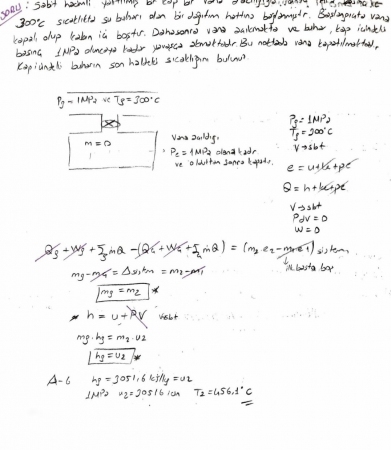 SORU: Sabit hacimli yalıtılmış bir kap bir vana aracılığıyla,
300°C sıcaklıkta su buharı olan bir dağıtım hattına bağlanmıştır. Başlangıçta vana
kapalı olup kabın içi boştur. Daha sonra vana açılmakta ve buhar, kap içindeki
basınç 1MPa oluncaya kadar yavaşça akmaktadır. Bu noktada vana kapatılmaktadır.
Kap içindeki buharın son haldeki sıcaklığını bulunuz.
Pg = 1MPa ve Tg = 300°C
m = 0
Vana açıldığı
P2 = 1MPa olana kadar
ve olduktan sonra kapatılır.
Pg = 1MPa
Tg = 300°C
V→sbt
e = u+ke+pe
Q = h+ke+pe
V→sbt
PdV = 0
W = 0
Qg + Wg + Σ mQ - (Qç + Wç + Σ mQ) = (m2 e2 - m1 e1) sistem
↓ ilk başta boş
mg - mç = Δsistm = m2 - m1
mg = m2 *
* h = u + PV V sbt
mg.hg = m2.u2
hg = u2
A-6 hg = 3051,6 kj/kg = u2
1MPa u2 = 3051,6 için T2 = 456,1°C